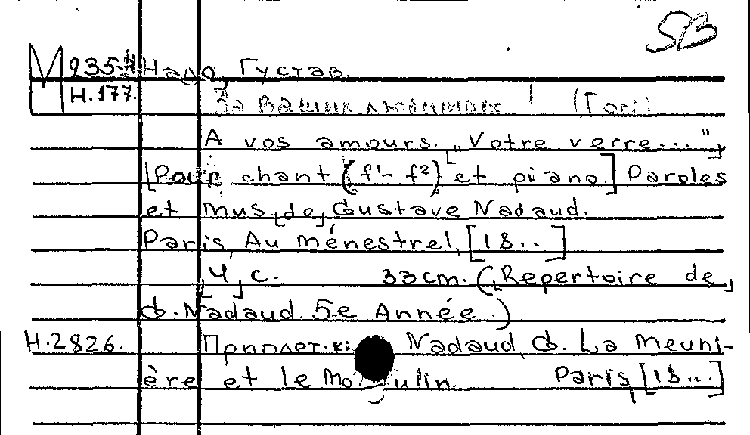 SB
М 235 Надо, Густав.
Н.177. За Ваших любимых! (Гол.)
A vos amours. "Votre verre...."
[Pour chant (f¹- f²) et piano] Paroles
et mus. de Gustave Nadaud.
Paris, Au Ménestrel, [18..]
4 с. 33cm. (Répertoire de
G. Nadaud. 5e Année.)
Н.2826. Приплет. к: Nadaud, G. La Meuni-
ère et le Moulin. Paris, [18...]